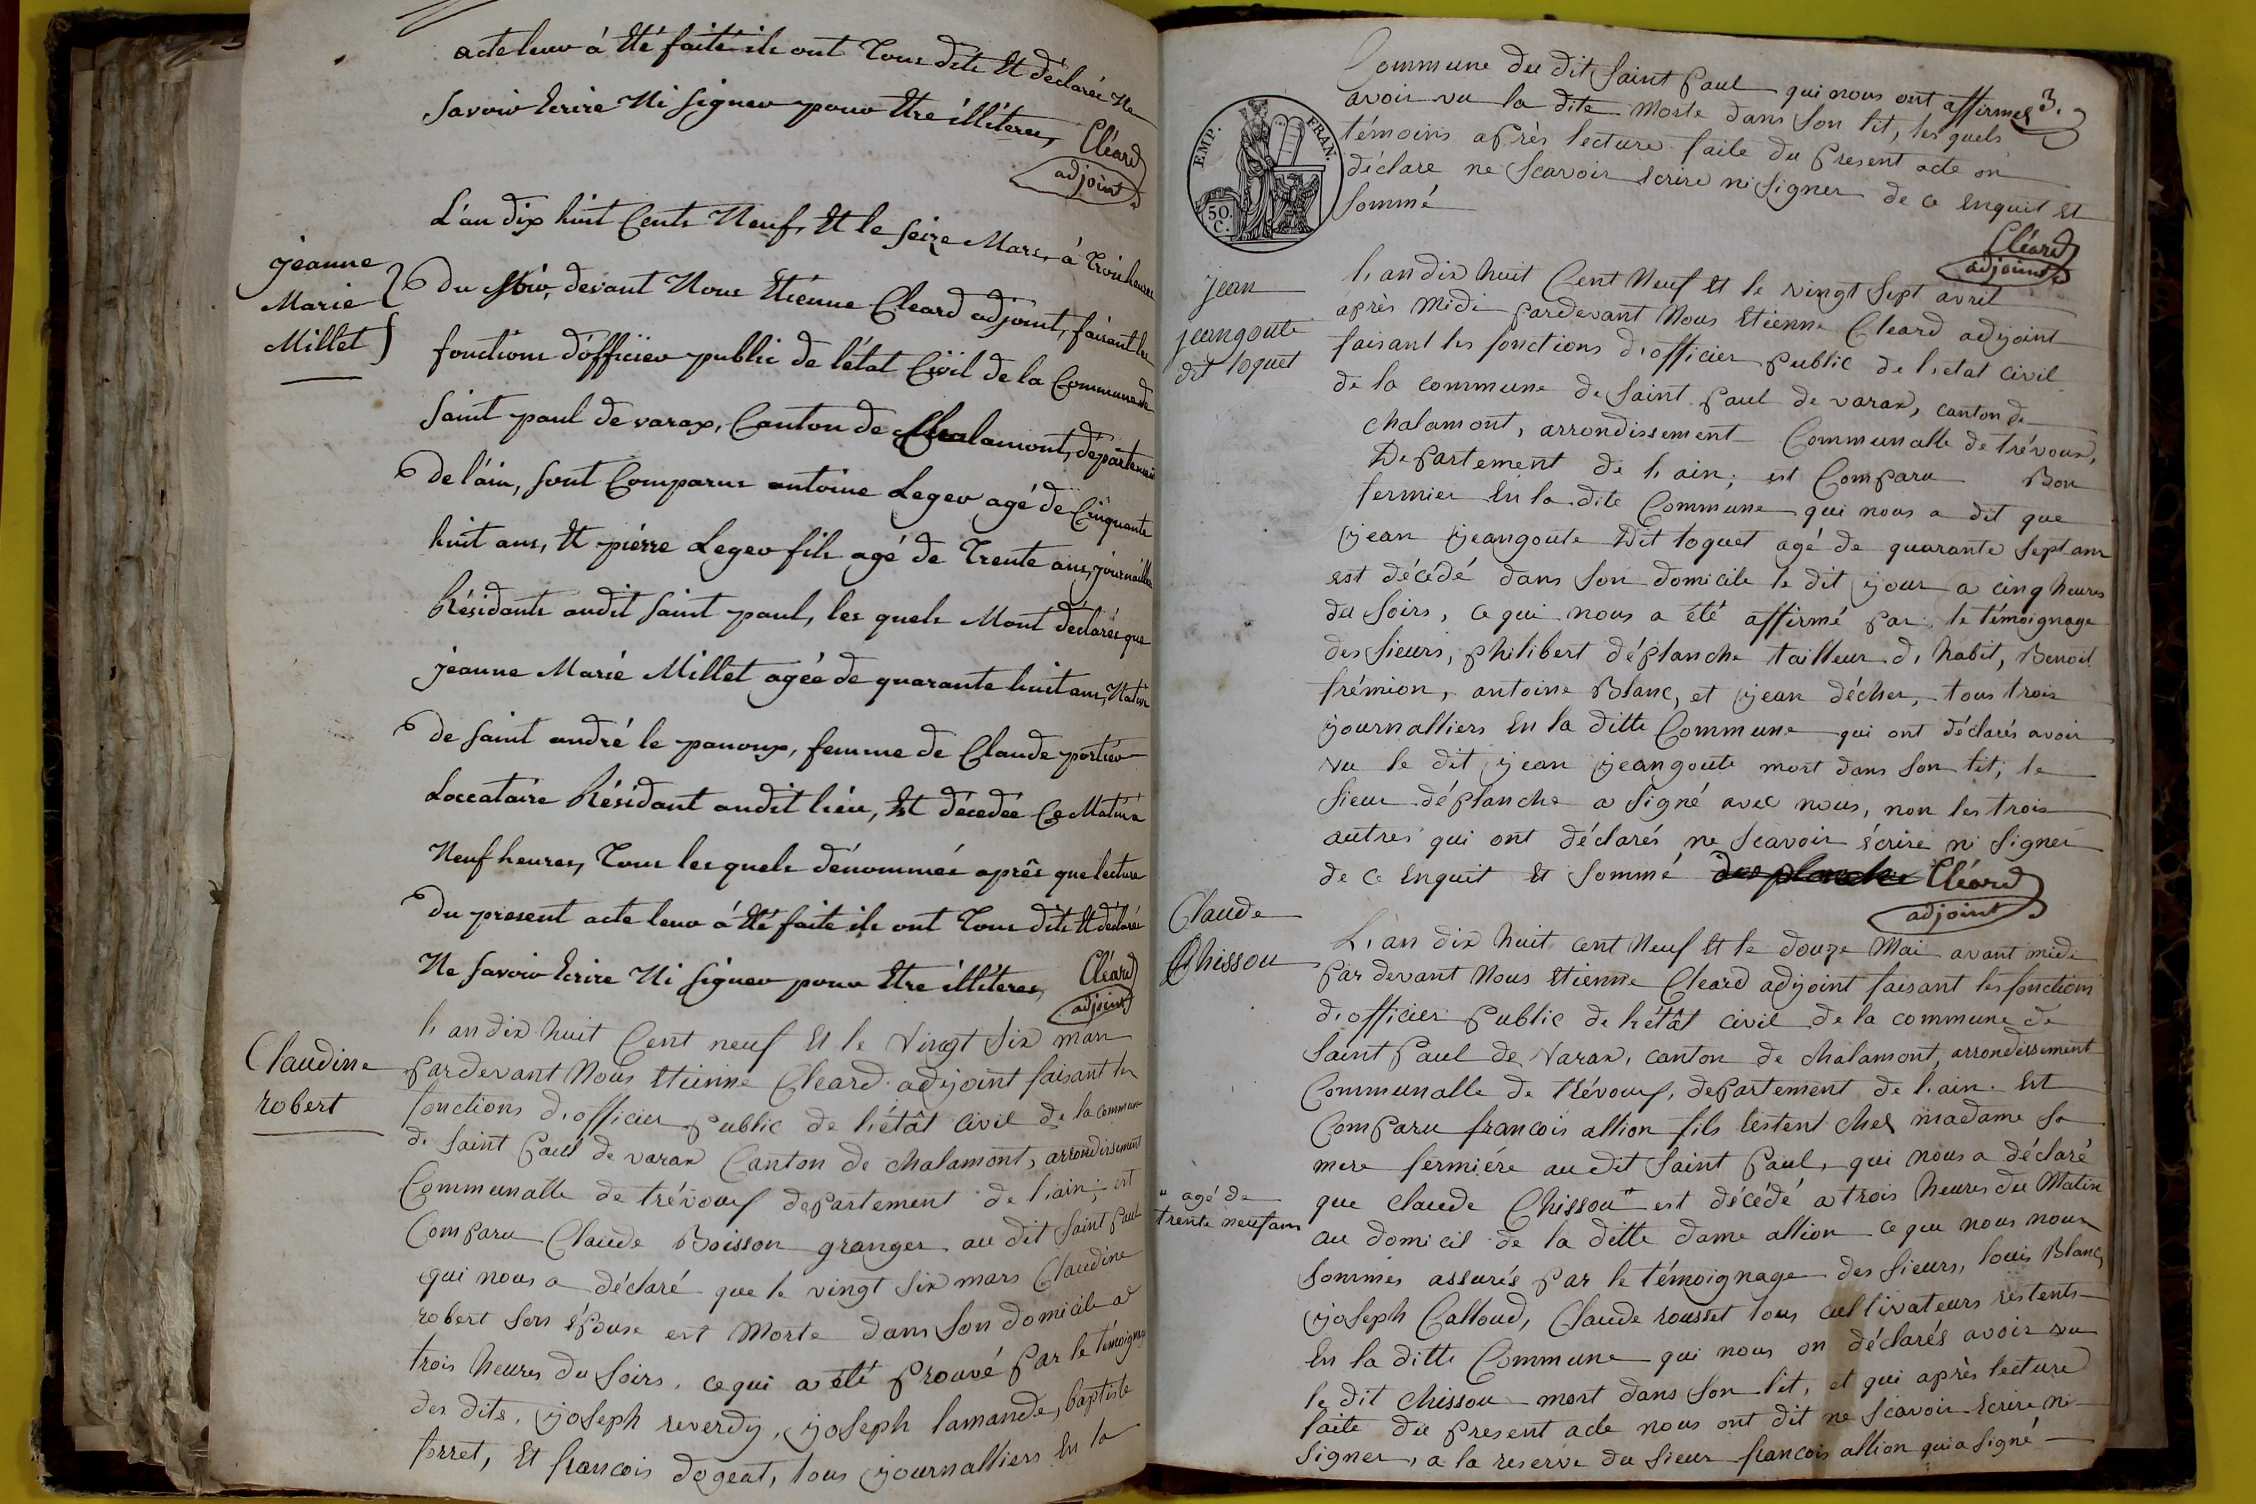 acte leur á Eté faite ils ont Tous dits Et déclarés Ne
Savoir Ecrire Ni Signer pour Etre illiteres,
Cléard
adjoint
jeanne
Marie
Millet
L'an dix huit Cents Neuf, Et le Seize Mars, à Trois heures
du Soir, devant Nous Etiénne Cleard adjoint, faisant les
fonctions d'officier public de l'état Civil de la Commune de
Saint paul de varax, Canton de Chalamont, départem
de l'áin, sont Comparus antoine Leger agé de Cinquante
huit ans, Et piérre Leger fils agé de Trente ans, journaillers
Résidants audit Saint paul, les quels Mont déclarés que
jeanne Marie Millet agée de quarante huit ans, Native
de Saint andré le panoux, femme de Claude portier
Loccataire Résidant audit liéu, Est décedée Ce Matin à
Neuf heures, Tous les quels dénommés aprês que lecture
du present acte leur á Eté faite ils ont Tous dits Et déclarés
Ne Savoir Ecrire Ni Signer pour Etre illiteres,
Cléard
adjoint
Claudine
robert
L'an dix huit Cent neuf Et le Vingt Six mars
Pardevant Nous Etienne Cleard adjoint faisant les
fonctions d'officier Public de l'étât Civil de la Commune
de Saint Paul de varax Canton de chalamont, arrondissement
Communalle de trévoux departement de l'ain; est
Comparu Claude Boisson granger au dit Saint Paul
qui nous a déclaré que le vingt Six mars Claudine
robert Son épouse est Morte dans Son domicile a
trois heures du Soirs, ce qui a été Prouvé Par le témoignage
des dits, joseph reverdy, joseph lamande, baptiste
forret, Et francois dogeat, tous journalliers En la
3.
Commune du dit Saint Paul qui nous ont affirmés
avoir vu la dite Morte dans Son lit, les quels
témoins après lecture faite du Present acte on
déclare ne Scavoir écrire ni Signer de ce Enquit et
Sommé
Cléard
adjoint
EMP. FRAN.
50. C.
jean
jeangoute
dit loquet
L'an dix huit Cent Neuf Et le vingt Sept avril
après Midi Pardevant Nous Etienne Cleard adjoint
faisant les fonctions d'officier Public de l'état civil
de la commune de Saint Paul de varax, canton de
chalamont, arrondissement Communalle de trévoux,
Departement de l'ain; est Comparu Bon
fermier En la dite Commune qui nous a dit que
jean jeangoute Dit loquet agé de quarante Sept ans
est décédé dans Son domicile le dit jour a cinq heures
du Soirs, ce qui nous a été affirmé Par le témoignage
des Sieurs, Philibert déplanche tailleur d'habit, Benoit
frémion, antoine Blanc, et jean décher, tous trois
journalliers En la ditte Commune qui ont déclarés avoir
vu le dit jean jeangoute mort dans Son lit, le
Sieur déplanche a Signé avec nous, non les trois
autres qui ont déclarés ne Scavoir écrire ni Signer
de ce Enquit Et Sommé desplanche Cléard
adjoint
Claude
Chissou
L'an dix huit cent Neuf Et le douze Mai avant midi
Par devant Nous Etienne Cleard adjoint faisant les fonctions
d'officier Public de l'étât civil de la commune de
Saint Paul de Varax, canton de chalamont, arrondissement
Communalle de trévoux, departement de l'ain. Est
Comparu francois allion fils restent chez madame Sa
mere fermiére au dit Saint Paul, qui nous a déclaré
que claude Chissou " est décédé a trois heures du Matin
" agé de
trente neuf ans
au domicil de la ditte dame allion ce que nous nous
Sommes assurés Par le témoignage des Sieurs, louis Blanc,
joseph Calloud, Claude rousset tous cultivateurs restents
En la ditte Commune qui nous on déclarés avoir vu
le dit chissou mort dans Son lit, et qui après lecture
faite du Present acte nous ont dit ne Scavoir Ecrire ni
Signer, a la reserve du Sieur francois allion qui a Signé